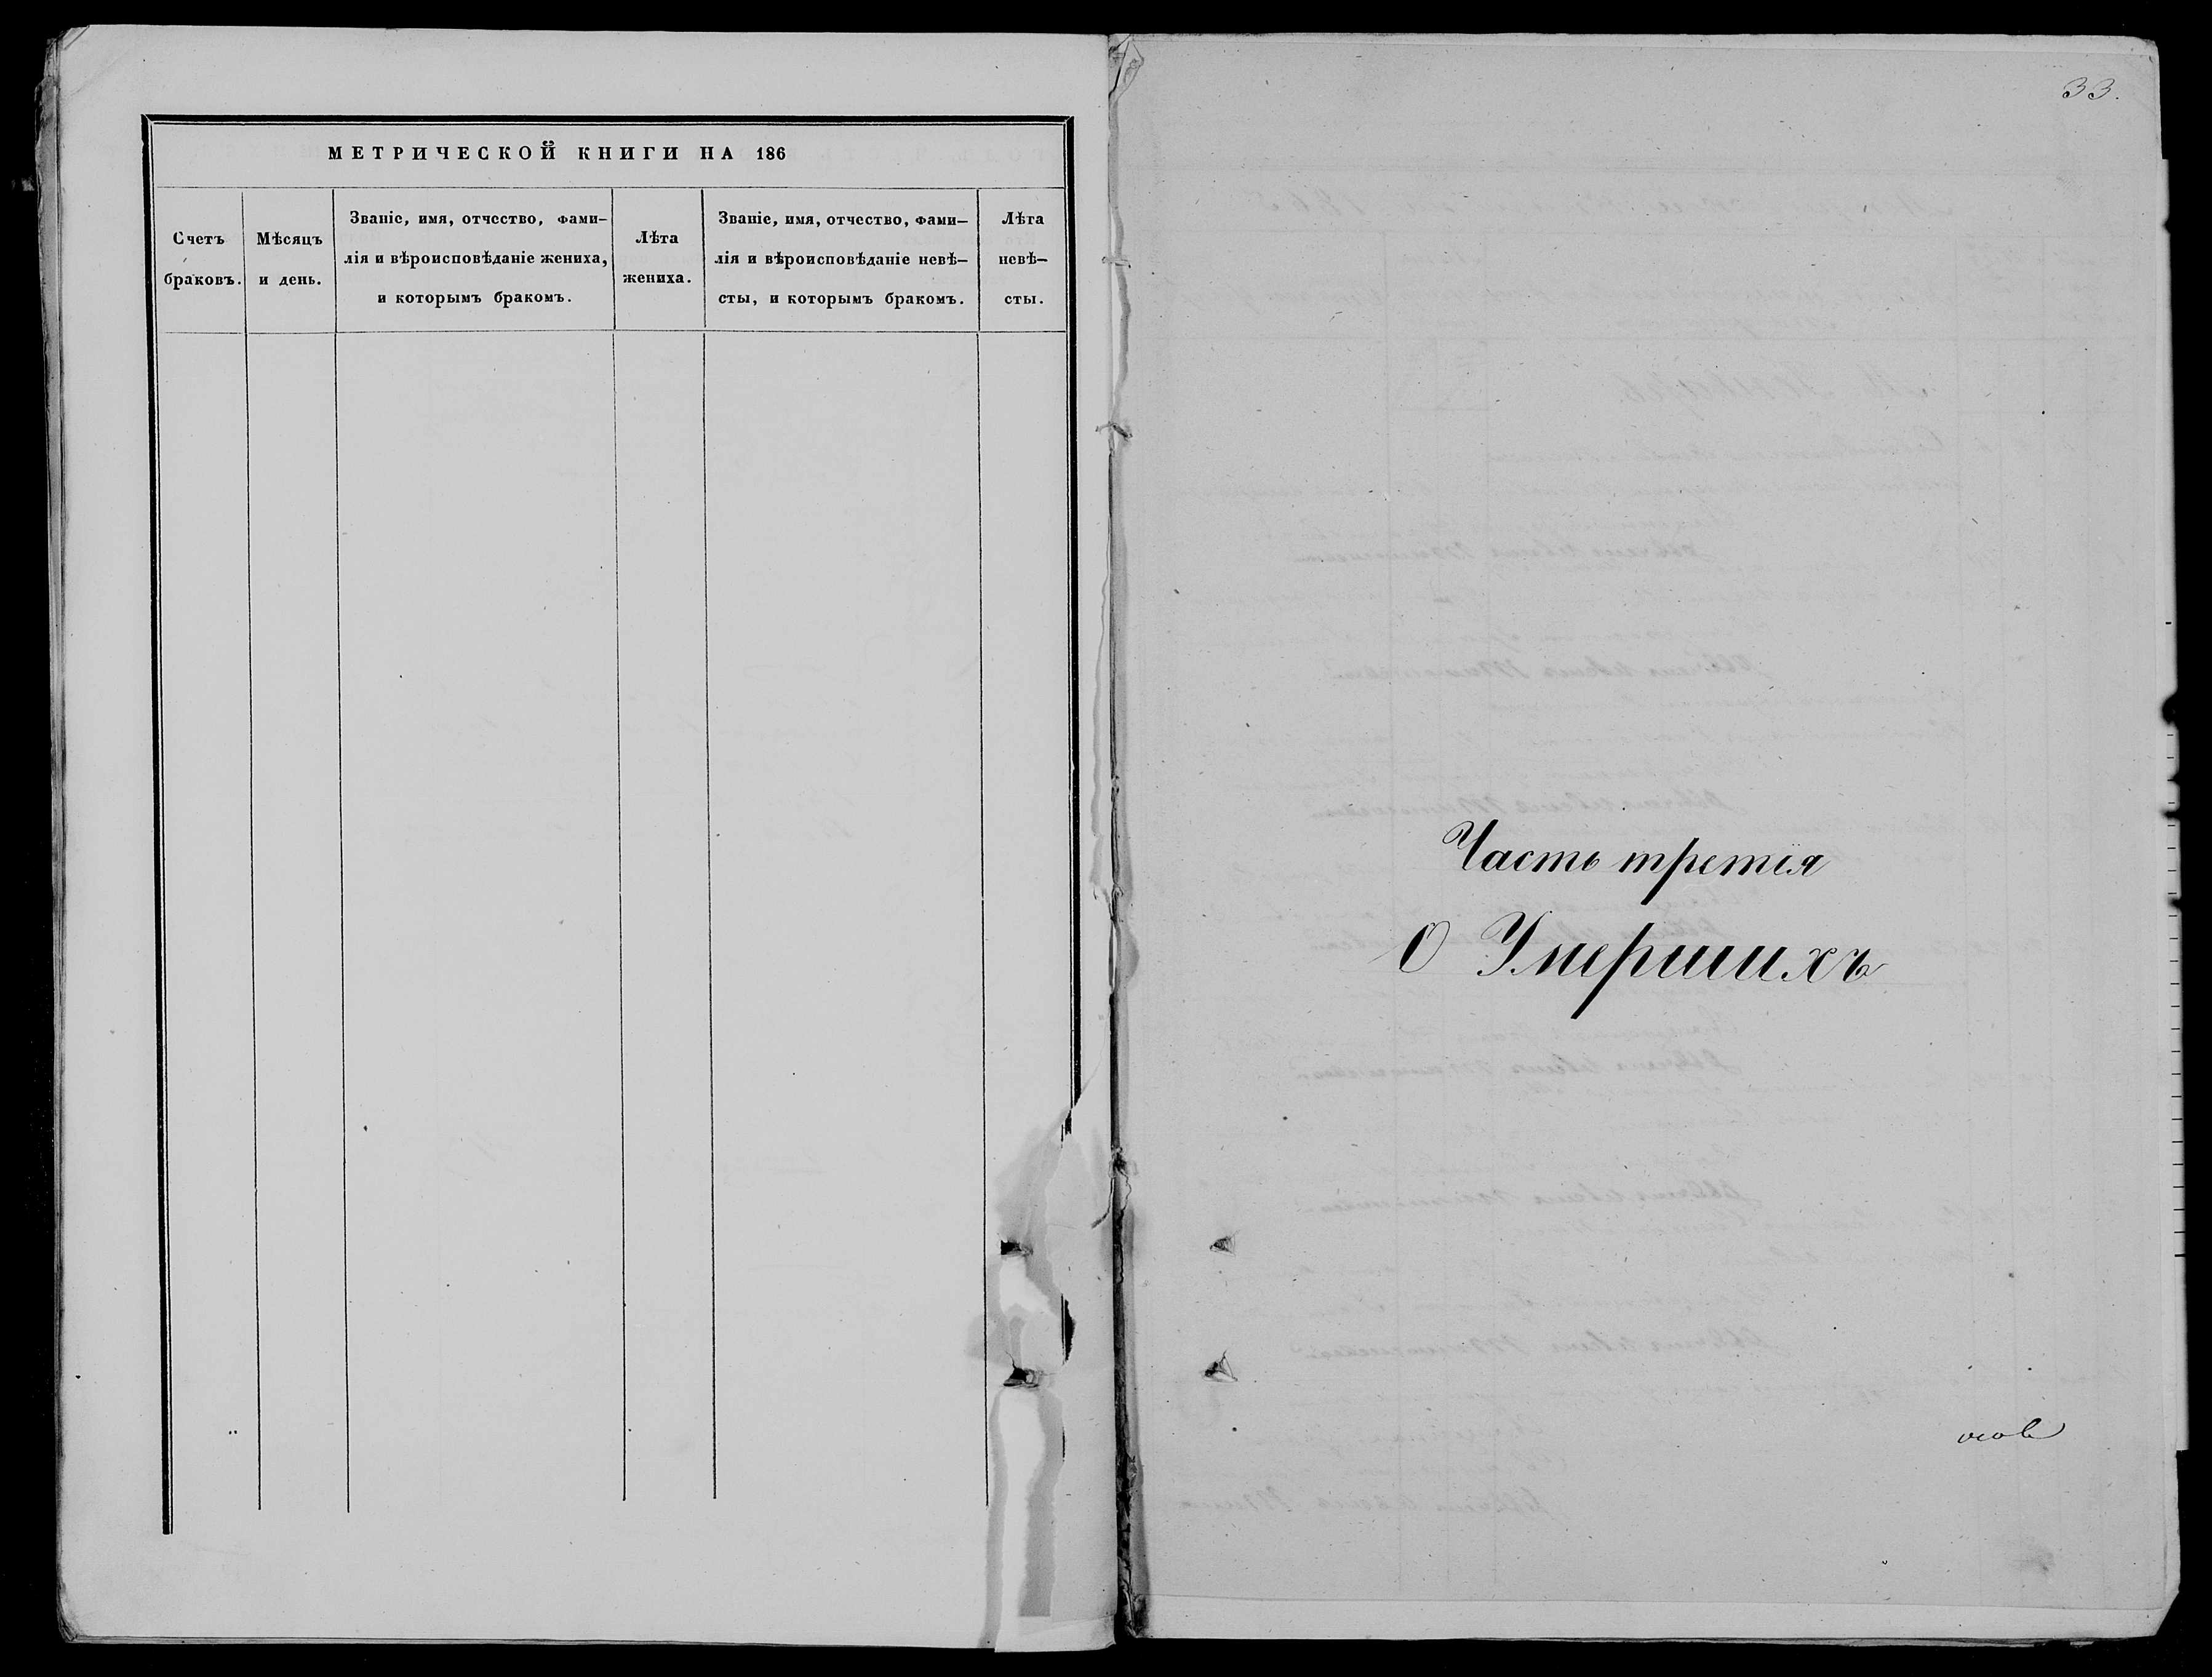 МЕТРИЧЕСКОЙ КНИГИ НА 186
Счетъ
браковъ.
Мѣсяцъ
и день.
Званіе, имя, отчество, фами–
лія и вѣроисповѣданіе жениха,
и которымъ бракомъ.
Лѣта
жениха.
Званіе, имя, отчество, фами–
лія и вѣроисповѣданіе невѣ–
сты, и которымъ бракомъ.
Лѣта
невѣ–
сты.
33.
Часть третія
О Умершихъ